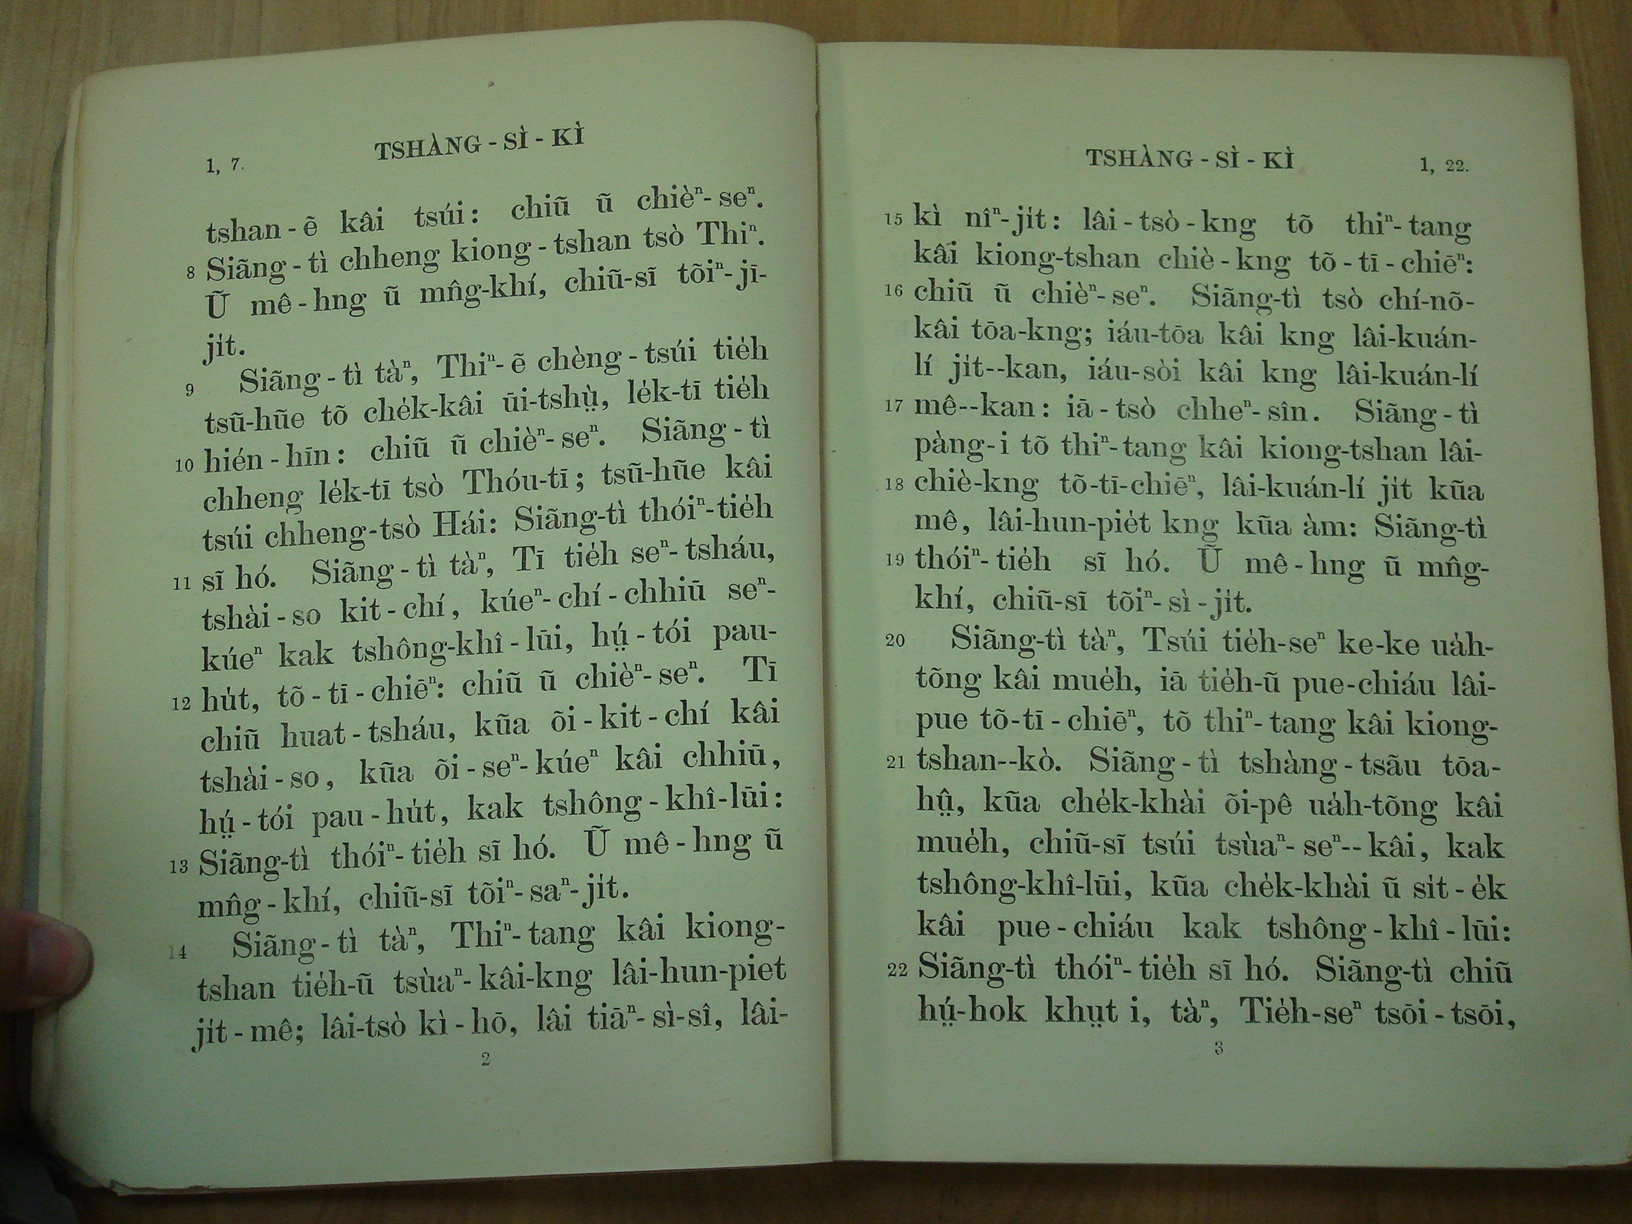 1, 7.
TSHÀNG - SÌ - KÌ
tshan - ẽ kâi tsúi: chiũ ũ chièⁿ- seⁿ.
8 Siãng - tì chheng kiong - tshan tsò Thiⁿ.
Ũ mê - hng ũ mn̂g-khí, chiũ-sĩ tõiⁿ- jī-
ji̍t.
9 Siãng - tì tàⁿ, Thiⁿ- ẽ chèng - tsúi tie̍h
tsũ-hũe tõ che̍k-kâi ūi-tshṳ̀, le̍k-tī tie̍h
hién - hīn: chiũ ũ chièⁿ- seⁿ. Siãng - tì
10 chheng le̍k-tī tsò Thóu-tī; tsũ-hũe kâi
tsúi chheng-tsò Hái: Siãng-tì thóiⁿ-tie̍h
11 sĩ hó. Siãng - tì tàⁿ, Tī tie̍h seⁿ- tsháu,
tshài - so kit - chí, kúeⁿ- chí - chhiū seⁿ-
kúeⁿ kak tshông-khî - lūi, hṳ́ - tói pau-
12 hu̍t, tõ - tī - chiēⁿ: chiũ ũ chièⁿ- seⁿ. Tī
chiũ huat - tsháu, kũa õi - kit - chí kâi
tshài - so, kũa õi - seⁿ- kúeⁿ kâi chhiū,
hṳ́ - tói pau - hu̍t, kak tshông - khî-lūi:
13 Siãng-tì thóiⁿ- tie̍h sĩ hó. Ũ mê - hng ũ
mn̂g - khí, chiũ-sĩ tõiⁿ- saⁿ- ji̍t.
14 Siãng - tì tàⁿ, Thiⁿ- tang kâi kiong-
tshan tie̍h-ũ tsùaⁿ- kâi-kng lâi-hun-piet
ji̍t - mê; lâi-tsò kì - hō, lâi tiāⁿ- sì-sî, lâi-
2
TSHÀNG - SÌ - KÌ
1, 22.
15 kì nîⁿ- ji̍t: lâi - tsò - kng tõ thiⁿ- tang
kâi kiong-tshan chiè - kng tõ - tī - chiēⁿ:
16 chiũ ũ chièⁿ- seⁿ. Siãng-tì tsò chí-nõ-
kâi tōa-kng; iáu-tōa kâi kng lâi-kuán-
lí ji̍t--kan, iáu-sòi kâi kng lâi-kuán-lí
17 mê--kan: iā - tsò chheⁿ- sîn. Siãng - tì
pàng - i tõ thiⁿ- tang kâi kiong-tshan lâi-
18 chiè-kng tõ-tī-chiēⁿ, lâi-kuán-lí ji̍t kũa
mê, lâi-hun-pie̍t kng kũa àm: Siãng-tì
19 thóiⁿ- tie̍h sĩ hó. Ũ mê - hng ũ mn̂g-
khí, chiũ-sĩ tõiⁿ- sì - ji̍t.
20 Siãng-tì tàⁿ, Tsúi tie̍h-seⁿ ke-ke ua̍h-
tõng kâi mue̍h, iā tie̍h-ũ pue-chiáu lâi-
pue tõ-tī - chiēⁿ, tõ thiⁿ- tang kâi kiong-
21 tshan--kò. Siãng - tì tshàng - tsãu tōa-
hṳ̂, kũa che̍k-khài õi-pê ua̍h-tõng kâi
mue̍h, chiũ-sĩ tsúi tsùaⁿ- seⁿ-- kâi, kak
tshông-khî-lūi, kũa che̍k-khài ũ si̍t - e̍k
kâi pue - chiáu kak tshông - khî - lūi:
22 Siãng-tì thóiⁿ- tie̍h sĩ hó. Siãng-tì chiũ
hṳ́-hok khṳt i, tàⁿ, Tie̍h-seⁿ tsōi - tsōi,
3